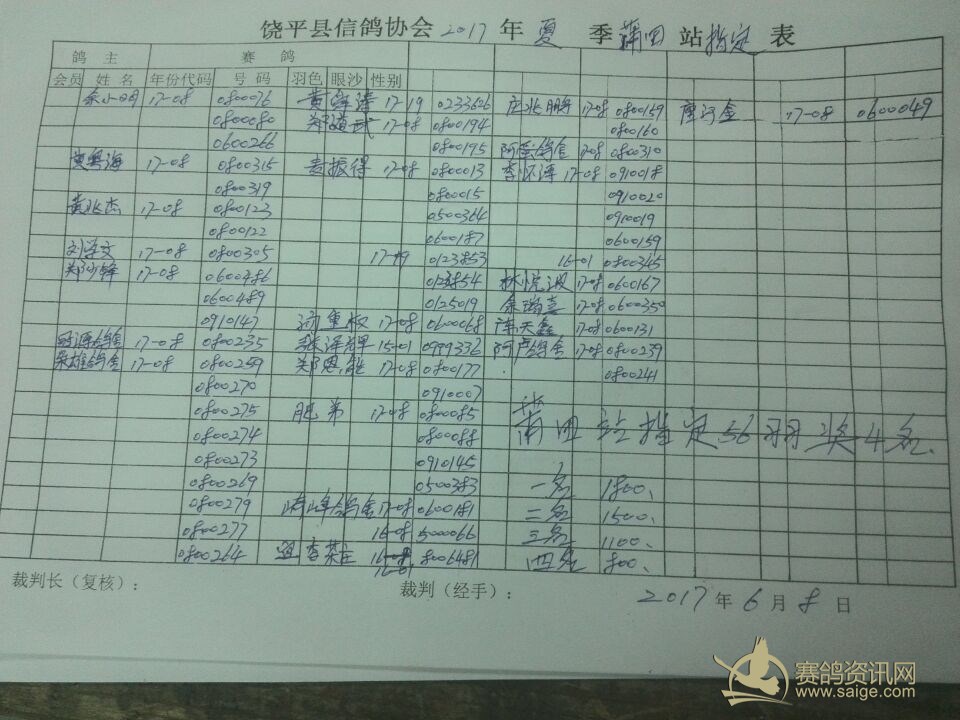 饶平县信鸽协会2017年夏季莆田站指定表
鸽 主 赛 鸽
会员 姓 名 年份代码 号 码 羽色 眼沙 性别
余小明 17-08 0800076 黄 17-19 0233606 庄兆鹏 17-08 0800159 17-08 0600049
0800080 郑道武 17-08 0800194 0800160
0600266 0800195 17-08 0800310
黄粤海 17-08 0800315 黄振得 17-08 0800013 李怀泽 17-08 0910018
0800319 0800015 0910020
黄兆杰 17-08 0800123 0500364 0910019
0800122 0600187 0600159
刘学文 17-08 0800305 17-19 0123853 16-01 0800345
郑 17-08 0600486 林悦波 17-08 0600167
0600489 0125019 余瑞喜 17-08 0600350
0910147 17-08 0600068 天鑫 17-08 0600131
冠源鸽舍 17-08 0800235 张泽 15-01 0999336 阿卢鸽舍 17-08 0800239
荣雄鸽舍 17-08 0800259 郑恩 17-08 0800177 0800241
0800270 0910007
0800275 肥弟 17-08 0800085 莆田站指定56羽奖4名.
0800274 0800088
0800273 0910145
0800269 0500383 一名 1800、
0800279 鸽舍 17-08 0600181 二名 1500、
0800277 16-08 5000066 三名 1100、
0800264 李荣 16-01 8006481 四名 800、
裁判长(复核): 裁判(经手): 2017年6月8日
赛鸽资讯网
www.saige.com